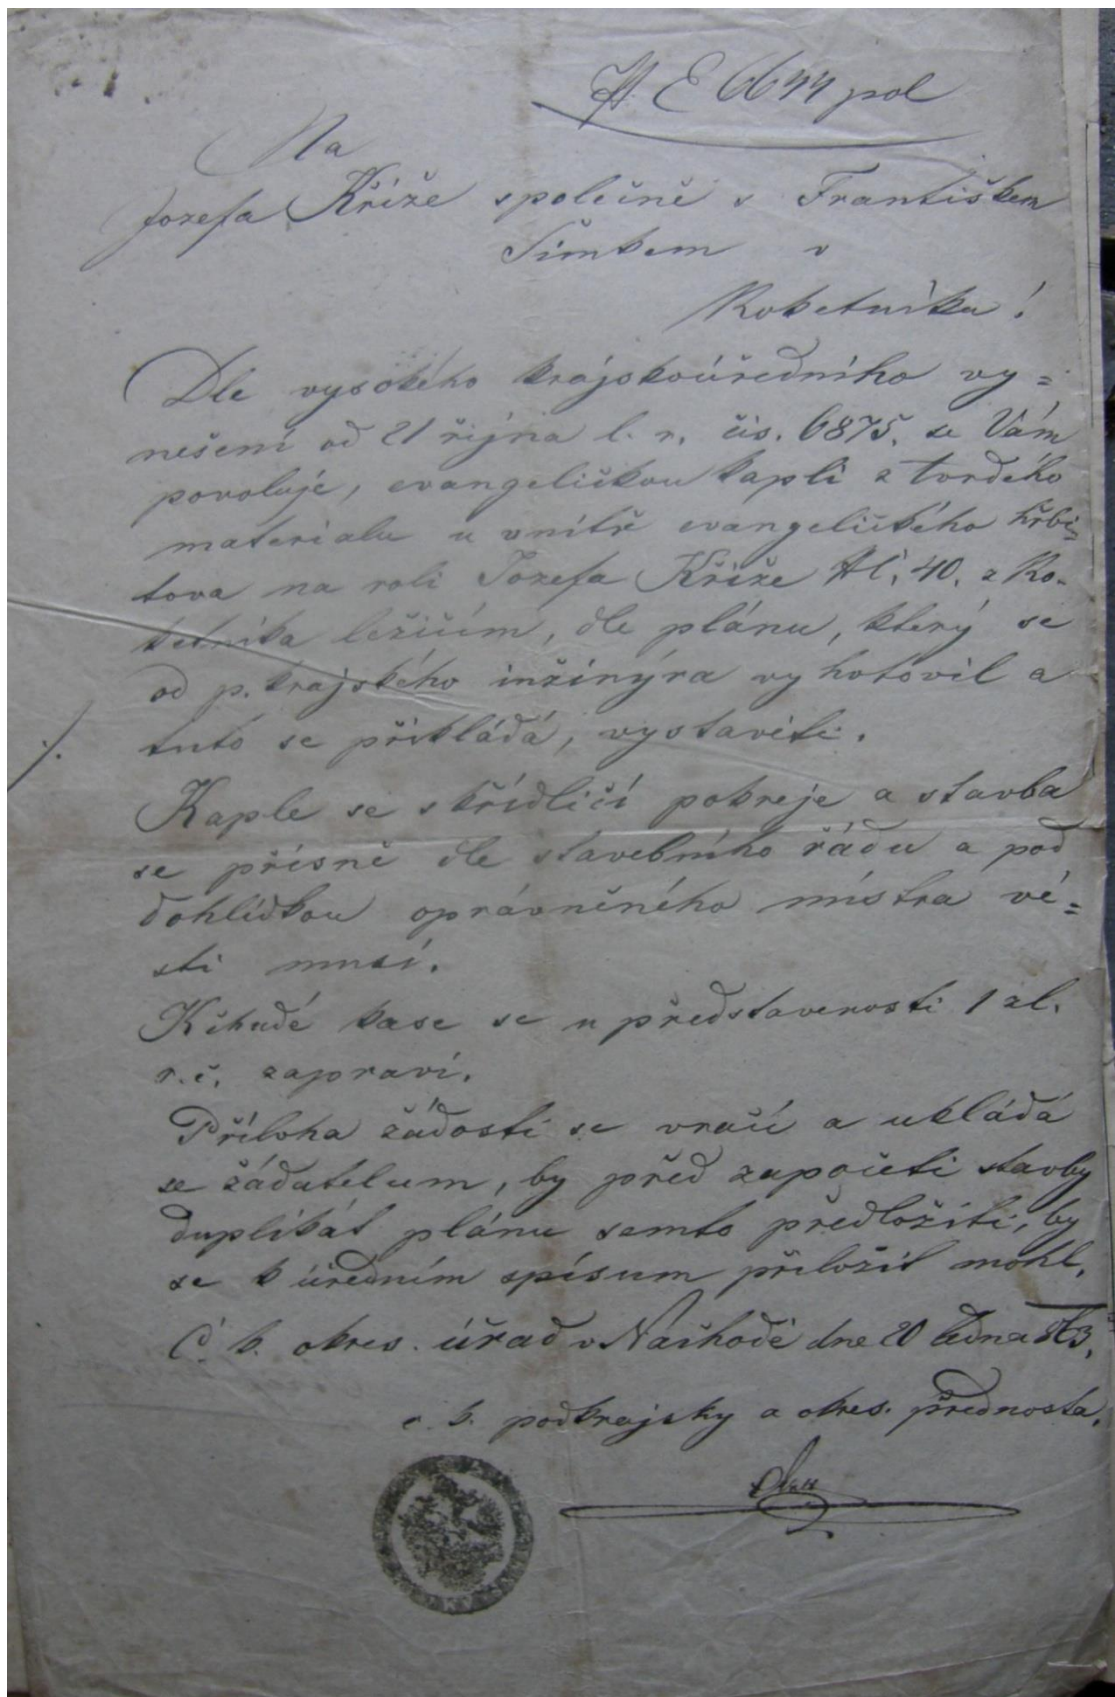 E 6644 pol
Na
Jozefa Kříže společně s Františkem
Šimkem v
Roketníku!
Dle vysokého krajskoúředního vy=
nešení od 21 října l. r. čís. 6875. se Vám
povoluje, evangeličkou kapli z tvrdého
materialu u vnitř evangelického hřbi=
tova na roli Jozefa Kříže 40. z Ro-
ketníka ležičím, dle plánu, který se
od p. krajského inžinýra vyhotovil a
tuto se přikládá, vystaviti.
Kaple se skřidličí pokreje a stavba
se přisně dle stavebního řádu a pod
dohlídkou oprávněného místra vé=
sti musí.
K chudé kase se u představenosti 1 zl.
r. č. zapraví.
Příloha žádosti se vračí a ukládá
se žádatelum, by před započetí stavby
duplikát plánu semto předložiti, by
se k úředním spisum přiložit mohl.
C. k. okres. úřad v Náchodě dne 20 ledna 863.
c. k. podkrajsky a okres. přednosta.